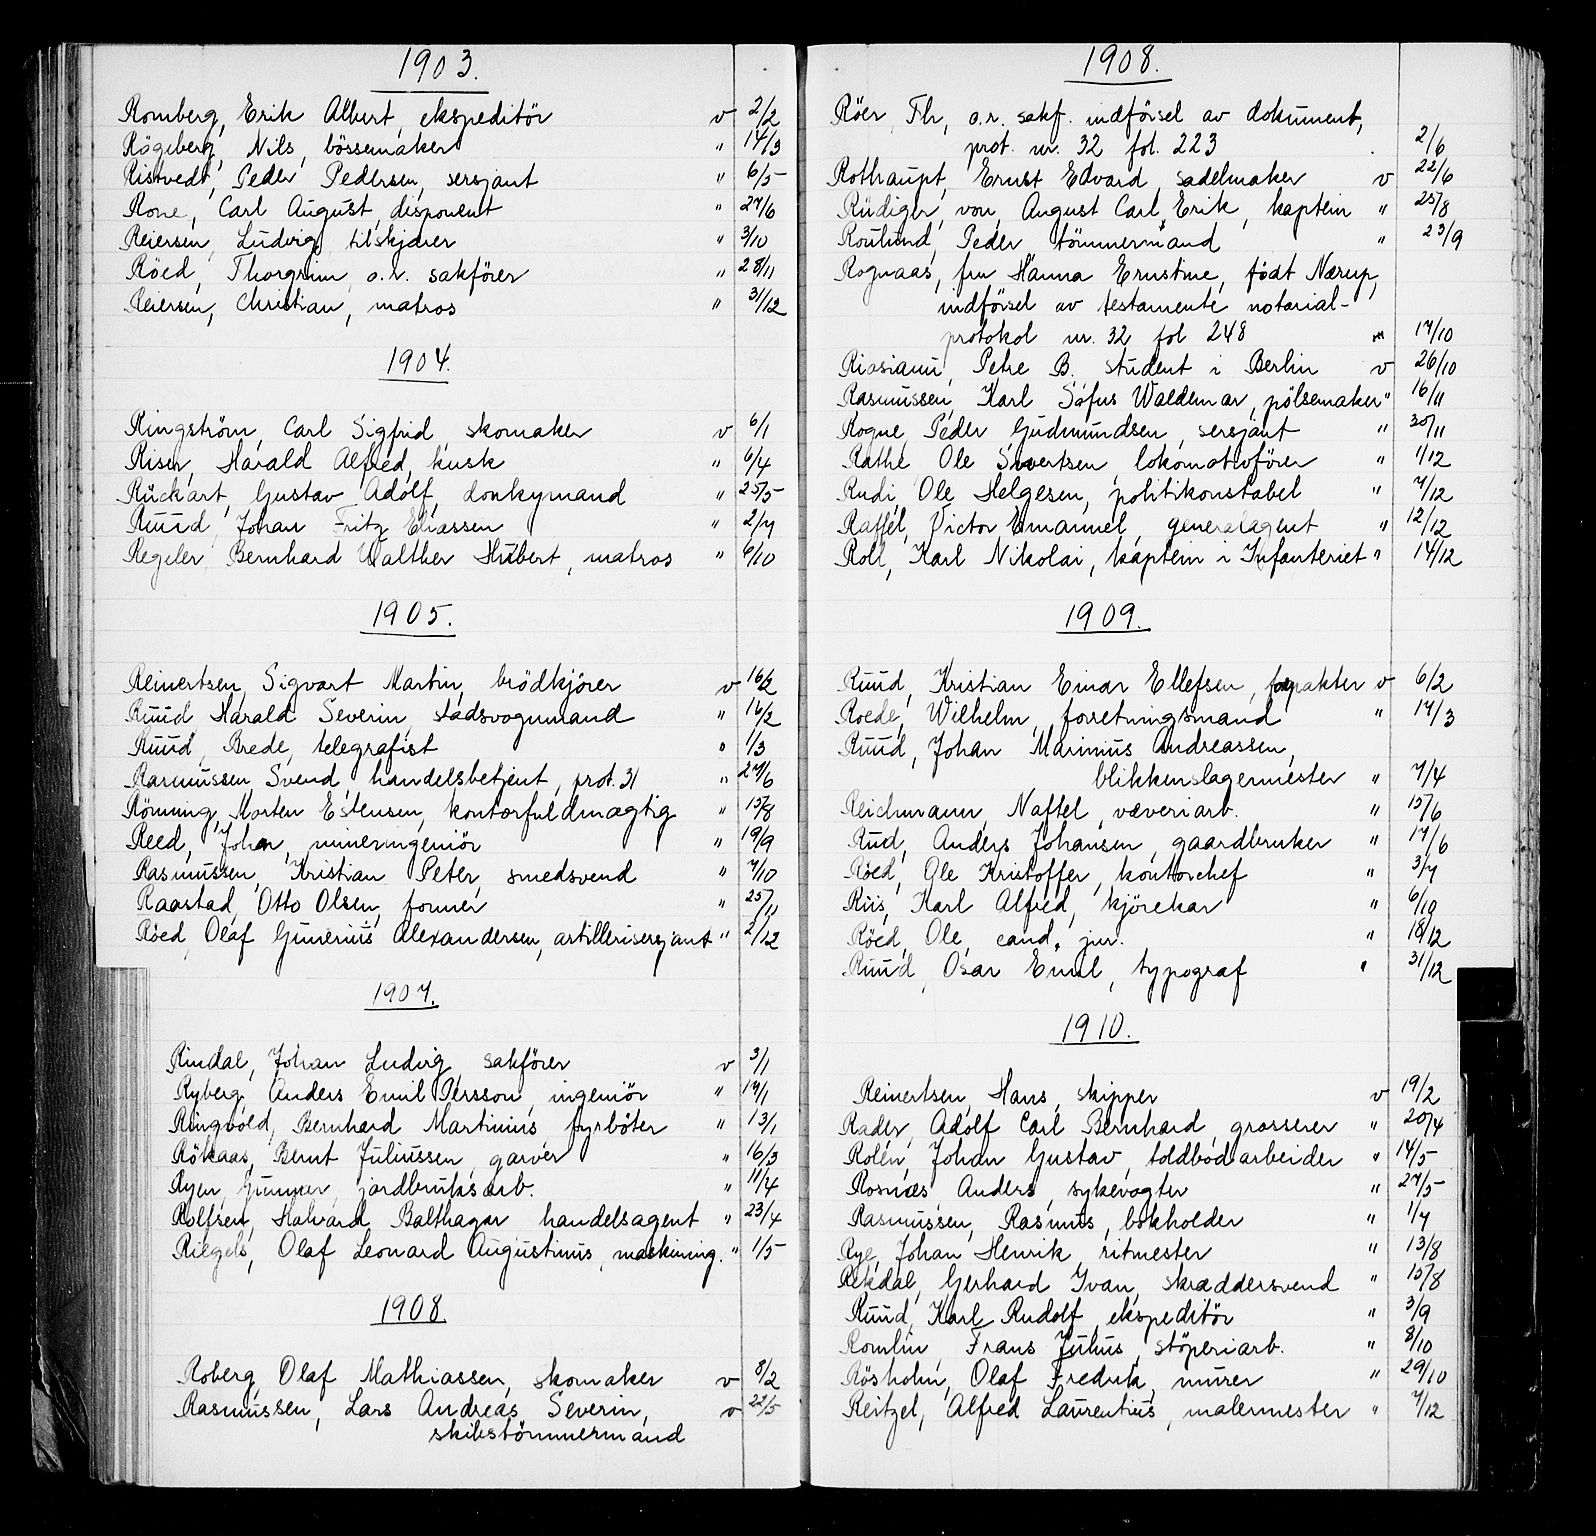 1903.
Romberg, Erik Albert, ekspeditör v 2/2
Rögeberg, Nils, bössemaker " 14/3
Ristvedt, Peder Pedersen, sersjant " 6/5
Rone, Carl August, disponent " 27/6
Reiersen, Ludvig, tilskjærer " 3/10
Röed, Thorgrim, o.r. sakförer " 28/11
Reiersen, Christian, matros " 31/12
1904.
Ringström, Carl Sigfrid, skomaker v 6/1
Riser, Harald Alfred, kusk " 6/4
Rückart, Gustav Adolf, donkymand " 25/5
Ruud, Johan Fritz Eliassen " 2/7
Regeler Bernhard Walther Hubert, matros " 6/10
1905.
Reinertsen, Sigvart Martin, brödkjörer v 16/2
Ruud Harald Severin, stadsvognmand " 16/2
Ruud, Brede, telegrafist " 1/3
Rasmussen, Svend, handelsbetjent, prot. 31 " 27/6
Rönning, Morten Estensen, kontorfuldmægtig " 15/8
Reed, Johan, mineringeniör " 19/9
Rasmussen, Kristian Peter, smedsvend " 7/10
Raastad, Otto Olsen, former " 25/11
Röed, Olaf Gunerius Alexandersen, artillerisersjant " 2/12
1907.
Rindal, Johan Ludvig, sakförer v 3/1
Ryberg, Anders Emil Persson, ingeniör " 17/1
Ringvold, Bernhard Martinius fyrböter " 13/1
Rökaas, Bernt Juliussen, garver " 16/3
Ryen, Gunner, jordbruksarb. " 11/4
Rolfsen, Halvard Balthazar handelsagent " 23/4
Riegels, Olaf Leonard Augustinus, maskining. " 1/5
1908.
Roberg, Olaf Mathiassen, skomaker v 8/2
Rasmussen, Lars Andreas Severin, v 22/5
skibstömmermand
1908.
Röer, Th, o.r. sakf. indförsel av dokument,
prot. nr. 32 fol. 223 2/6
Rothaupt, Ernst Edvard, sadelmaker v 22/6
Rüdiger, von, August Carl Erik, kaptein " 25/8
Roulund, Peder tömmermand " 23/9
Rognaas, fru Hanna Ernstine, födt Nærup,
indförsel av testamente notarial-
protokol nr. 32 fol 248 " 17/10
Riosianu, Petre B. student i Berlin v 26/10
Rasmussen, Karl Sofus Waldemar, pölsemaker " 16/11
Rogne, Peder Gudmundsen, sersjant " 30/11
Rathe Ole Sivertsen, lokomotivförer " 1/12
Rudi, Ole Helgesen, politikonstabel " 7/12
Raffel, Victor Emanuel, generalagent " 12/12
Roll, Karl Nikolai, kaptein i Infanteriet " 14/12
1909.
Ruud, Kristian Einar Ellefsen, forpakter v 6/2
Roede, Wilhelm, forretningsmand " 17/3
Ruud, Johan Marinius Andreassen,
blikkenslagermester " 7/4
Reichmann, Naftel, væveriarb. " 15/6
Rud, Anders Johansen, gaardbruker " 17/6
Röed, Ole Kristoffer, kontorchef " 3/7
Riis, Karl Alfred, kjörekar " 6/10
Röed, Ole, cand. jur. " 18/12
Ruud, Osar Emil, typograf " 31/12
1910.
Reinertsen, Hans, skipper v 19/2
Rader, Adolf Carl Bernhard, grosserer " 20/4
Rolén, Johan Gustav, toldbodarbeider " 14/5
Rosnæs, Anders, sykevogter " 27/5
Rasmussen, Rasmus, bokholder " 1/7
Rye, Johan Henrik, ritmester " 13/8
Rekdal, Gerhard Ivan, skræddersvend " 15/8
Ruud, Karl Rudolf, ekspeditör " 3/9
Romlin, Frans Julius, stöperiarb. " 8/10
Rösholm, Olaf Fredrik, murer " 29/10
Reitzel, Alfred Laurentius, malermester " 7/12